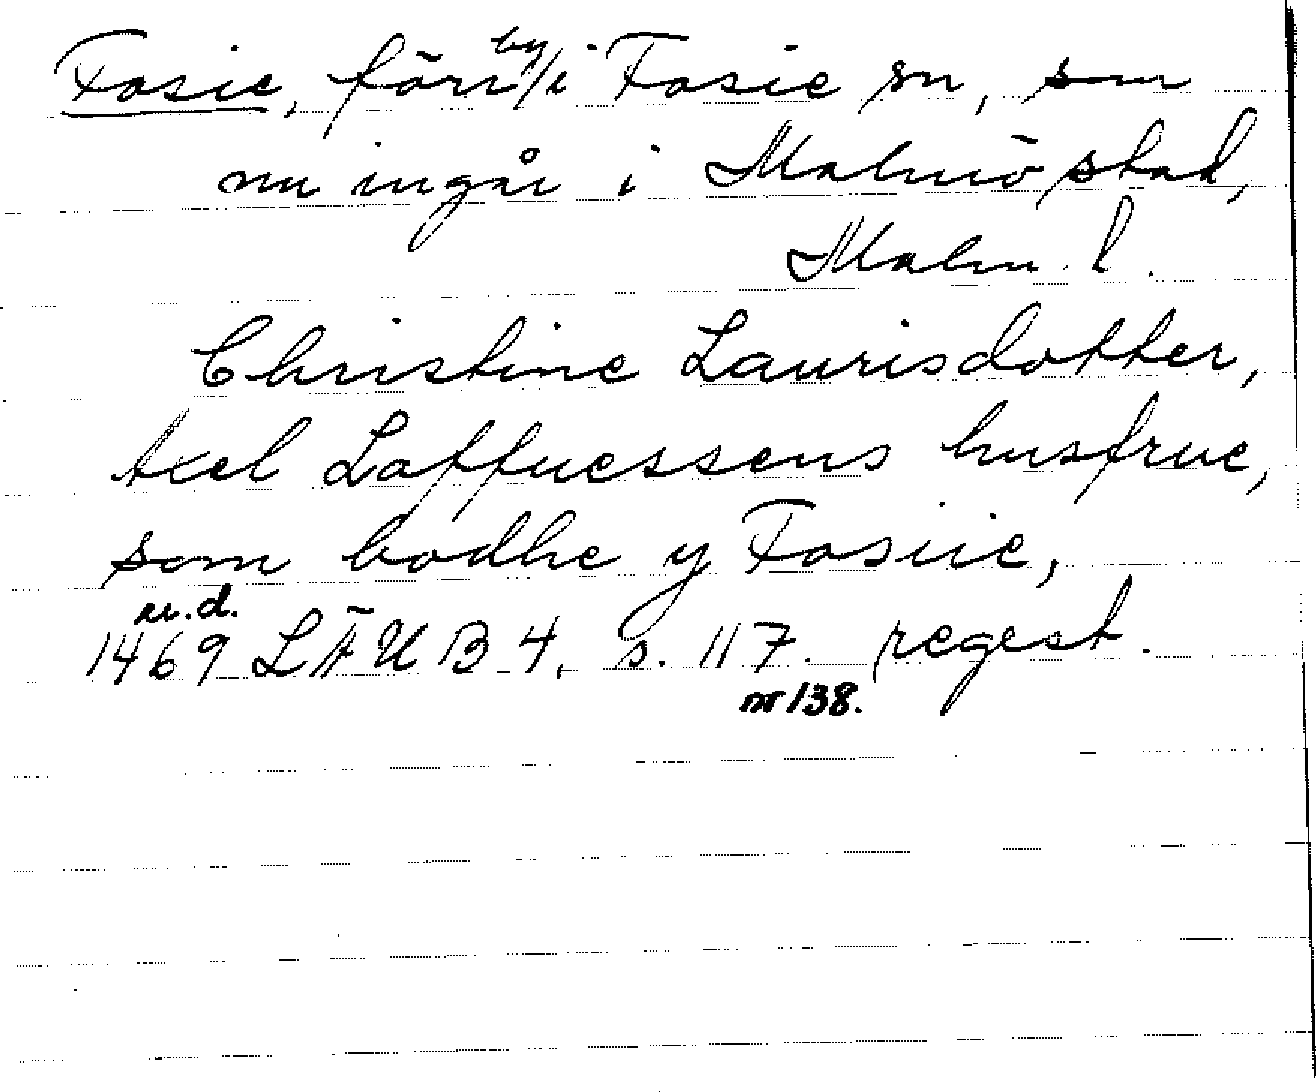 Fosie, förr by i Fosie sn, som
nu ingår i Malmö stad,
Malm. l.
Christine Laurisdotter,
Axel Laffuessens husfrue,
som bodhe y Fosiie,
u.d.
1469 LÄUB 4, s. 117. regest.
nr 138.